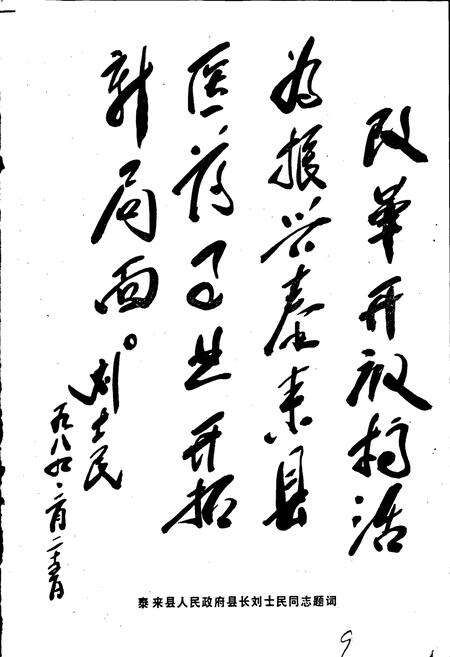 改革开放搞活
为振兴泰来县
医药事业开拓
新局面。
刘士民
一九八九·二月二十五日
泰来县人民政府县长刘士民同志题词
9